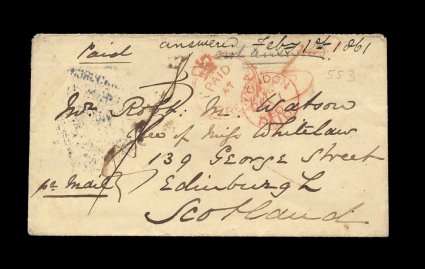 Paid answered Feby 1st 1861
553
PAID
AT
LONDON
PAID
Mr Robt. M. Watson
Care of Miss Whitelaw
139 George Street
pr Mail Edinburgh
Scotland